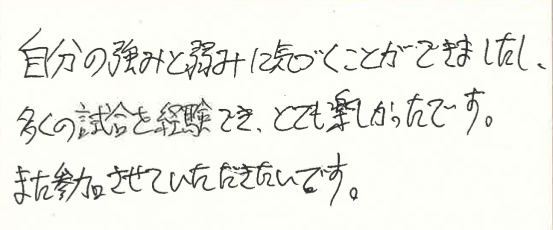 自分の強みと弱みに気づくことができましたし、
多くの試合を経験でき、とても楽しかったです。
また参加させていただきたいです。